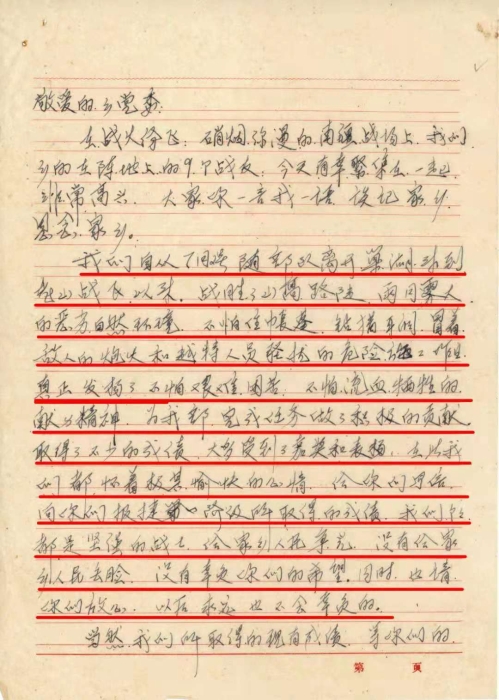 敬爱的乡党委:
在战火纷飞,硝烟弥漫的南疆战场上,我们
乡的在阵地上的9个战友,今天有幸聚集在一起,
非常高兴。大家你一言我一语,谈论家乡,
思念家乡。
我们自从 随部队离开巢湖来到
老山战区以来,战胜了山高路陡,雨雨
的恶劣自然环境,不怕住帐篷,钻猫耳洞,冒着
敌人的炮火和越特人员骚扰的危险 工作
真正发扬了不怕艰难困苦,不怕流血牺牲的
献身精神,为我部完成任务做了积极的贡献,
取得了不少的成绩,大多受到了嘉奖和表扬,在此我
们都怀着极其愉快的心情,给你们写信,
向你们报捷 阶段所取得的成绩,我们
都是坚强的战士,给家乡人民争光,没有给家
乡人民丢脸,没有辜负你们的希望。同时,也请
你们放心,以后永远也不会辜负的。
当然,我们所取得的现有成绩,与你们的
第 頁